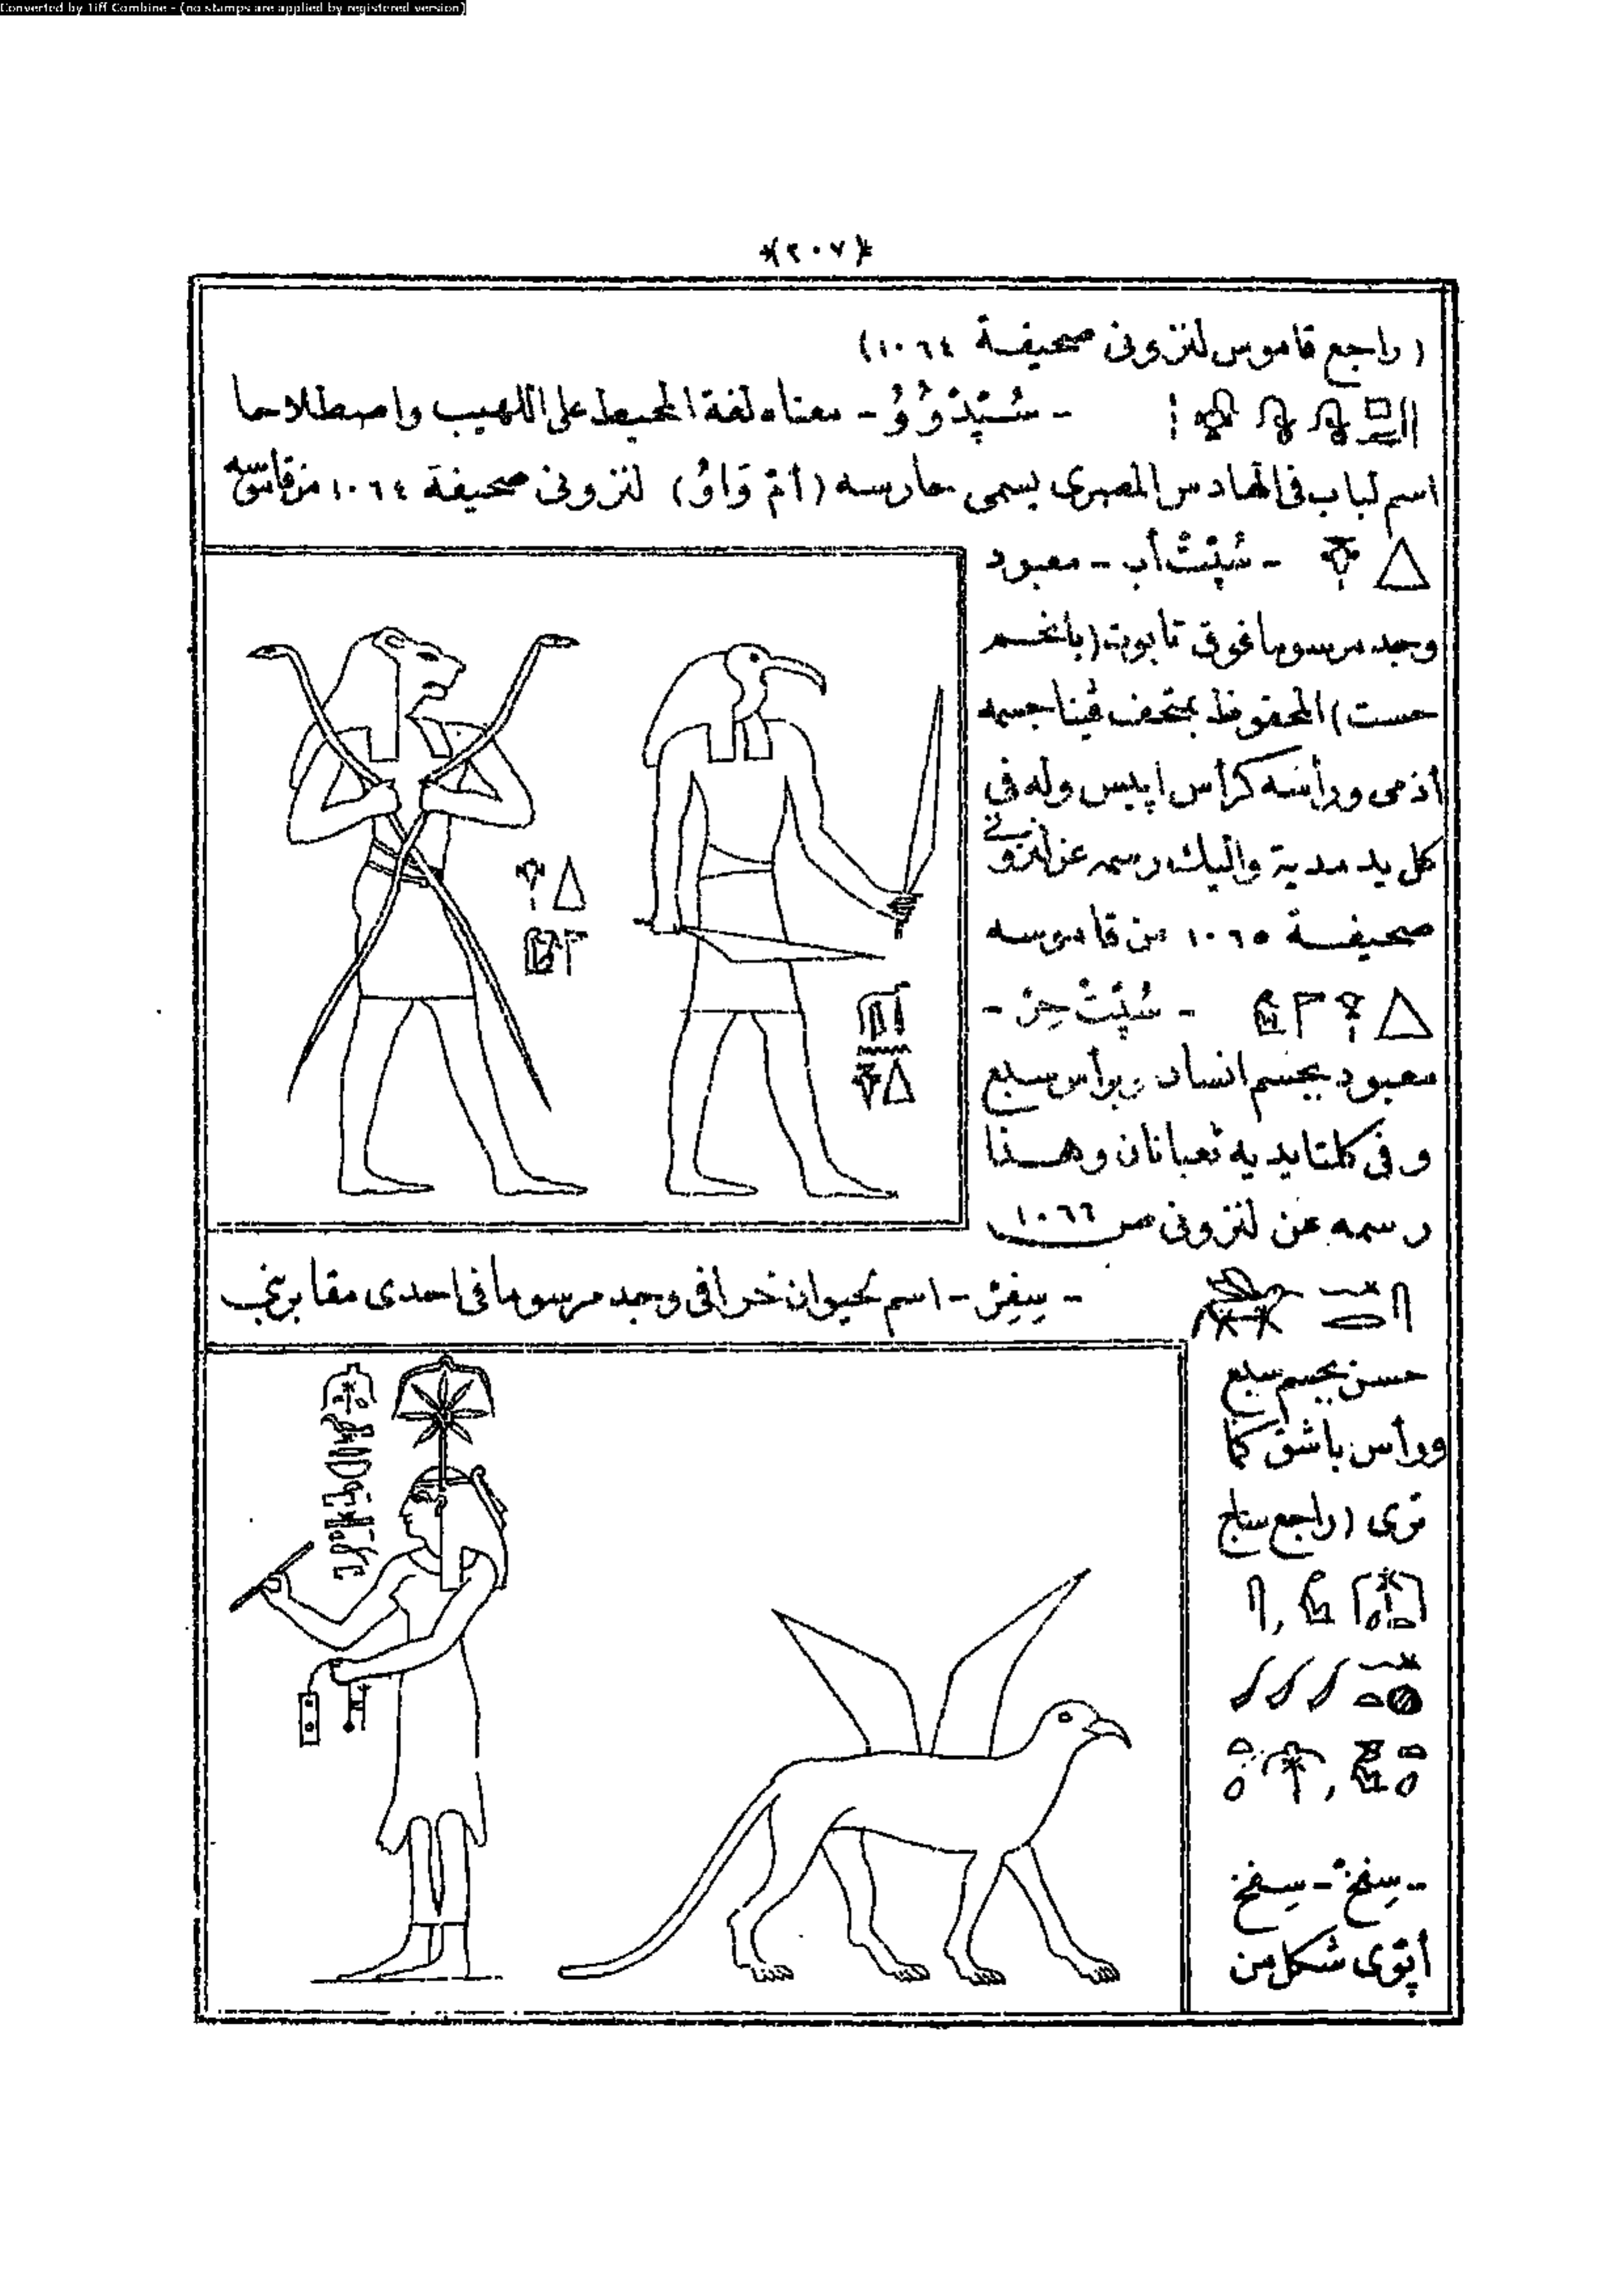 Converted by Tiff Combine - (no stamps are applied by registered version)
(٢٠٧)
(راجع قاموس لنزونى صحيفة ١٠٦٤)
- سُبِدْوُوُ - معناه لغة المحيط على اللهيب واصطلاحا
اسم لباب فى الهادس المصرى يسمى حارسه (أمْ وَاوُ) لنزونى صحيفة ١٠٦٤ من قاموسه
- سُپْتْ أب - معبود
وجد مرسوما فوق تابوت (بانخم
حست) المحفوظ بمتحف ڤينا جسمه
أدمى ورأسه كرأس ابيس وله فى
كل يد مدية واليك رسمه عن لنزونى
صحيفة ١٠٦٥ من قاموسه
- سُپْتْ حِرْ -
معبود بجسم انسان وبرأس سبع
وفى كلتا يديه ثعبانان وهذا
رسمه عن لنزونى ص ١٠٦٦
- سِفِرْ - اسم لحيوان خرافى وجد مرسوما فى احدى مقابر بنى
حسن بجسم سبع
ورأس باشق كما
ترى (راجع
- سِفِخْ - سِفِخْ
أبْوى شكل من